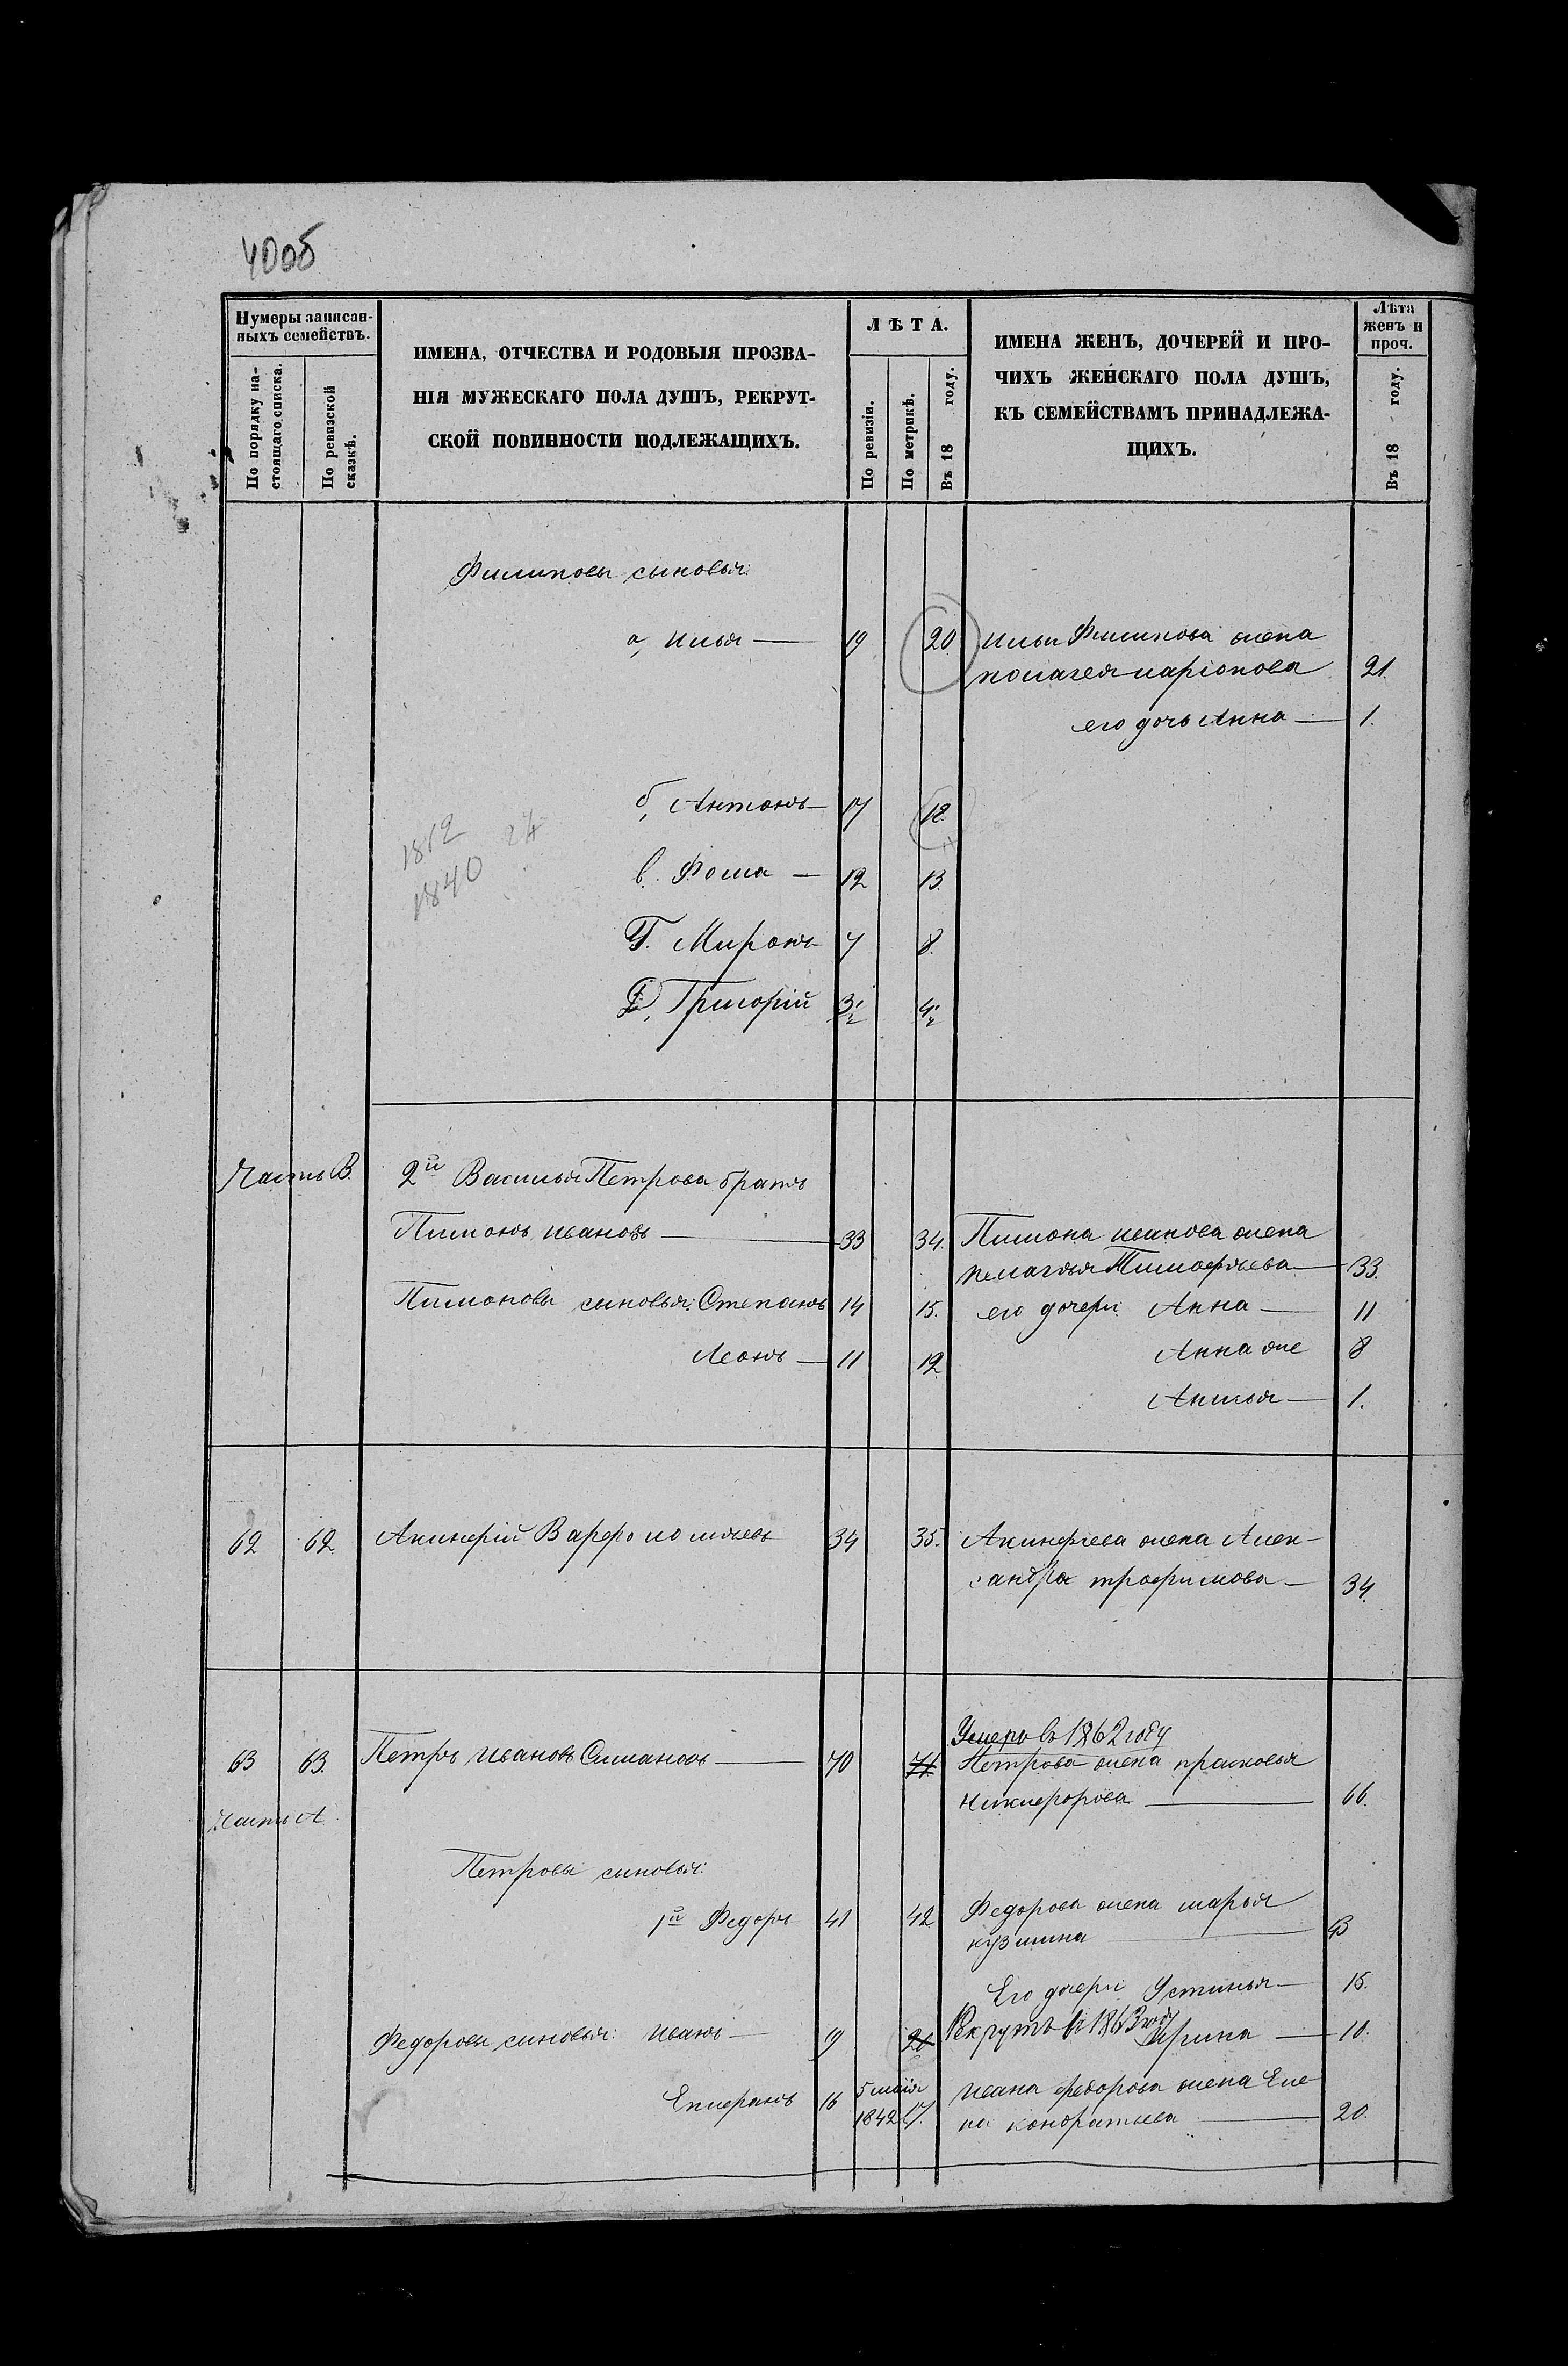 40об
Нумеры записан-
ныхъ семействъ.
По порядку на-
стоящаго списка.
По ревизской
сказкѣ.
ИМЕНА, ОТЧЕСТВА И РОДОВЫЯ ПРОЗВА-
НІЯ МУЖЕСКАГО ПОЛА ДУШЪ, РЕКРУТ-
СКОЙ ПОВИННОСТИ ПОДЛЕЖАЩИХЪ.
ЛѢТА.
По ревизіи.
По метрикѣ.
Въ 18 году.
ИМЕНА ЖЕНЪ, ДОЧЕРЕЙ И ПРО-
ЧИХЪ ЖЕНСКАГО ПОЛА ДУШЪ,
КЪ СЕМЕЙСТВАМЪ ПРИНАДЛЕЖА-
ЩИХЪ.
Лѣта
женъ и
проч.
Въ 18 году.
Филиповы сыновья:
а, Илья — 19 20. Ильи Филипова жена
Полагея иларіонова 21.
его дочь Анна — 1.
б, Антонъ — 17 18.
1862 24
1840
в. Фома — 12 13.
Г. Миронъ 7 8.
Д, Григорій 3½ 4½
Часть В. 2й Василья Петрова братъ
Пимонъ ивановъ — 33 34. Пимона иванова жена
пелагья Тимофѣева — 33.
Пимоновы сыновья: Степанъ 14 15. его дочери Анна — 11
Леонъ — 11 12 Анна же 8
Анисья — 1.
62 62. Акинфій Варфоломѣевъ 34 35. Акинфіева жена Алек-
сандра трофимова — 34.
Умеръ въ 1862 году
63 63. Петръ ивановъ Симановъ — 70 71. Петрова жена прасковья
Никифорова — 66.
Часть А.
Петровы сыновья:
1й Федоръ 41 42 Федорова жена марья
кузмина — 43
Его дочери Устинья — 15.
Федоровы сыновья: иванъ — 19 20 Рекрутъ въ 1863 году Ирина — 10.
Епифанъ 16 5 маія 1842 17. ивана федорова жена Еле-
на кондратьева — 20.